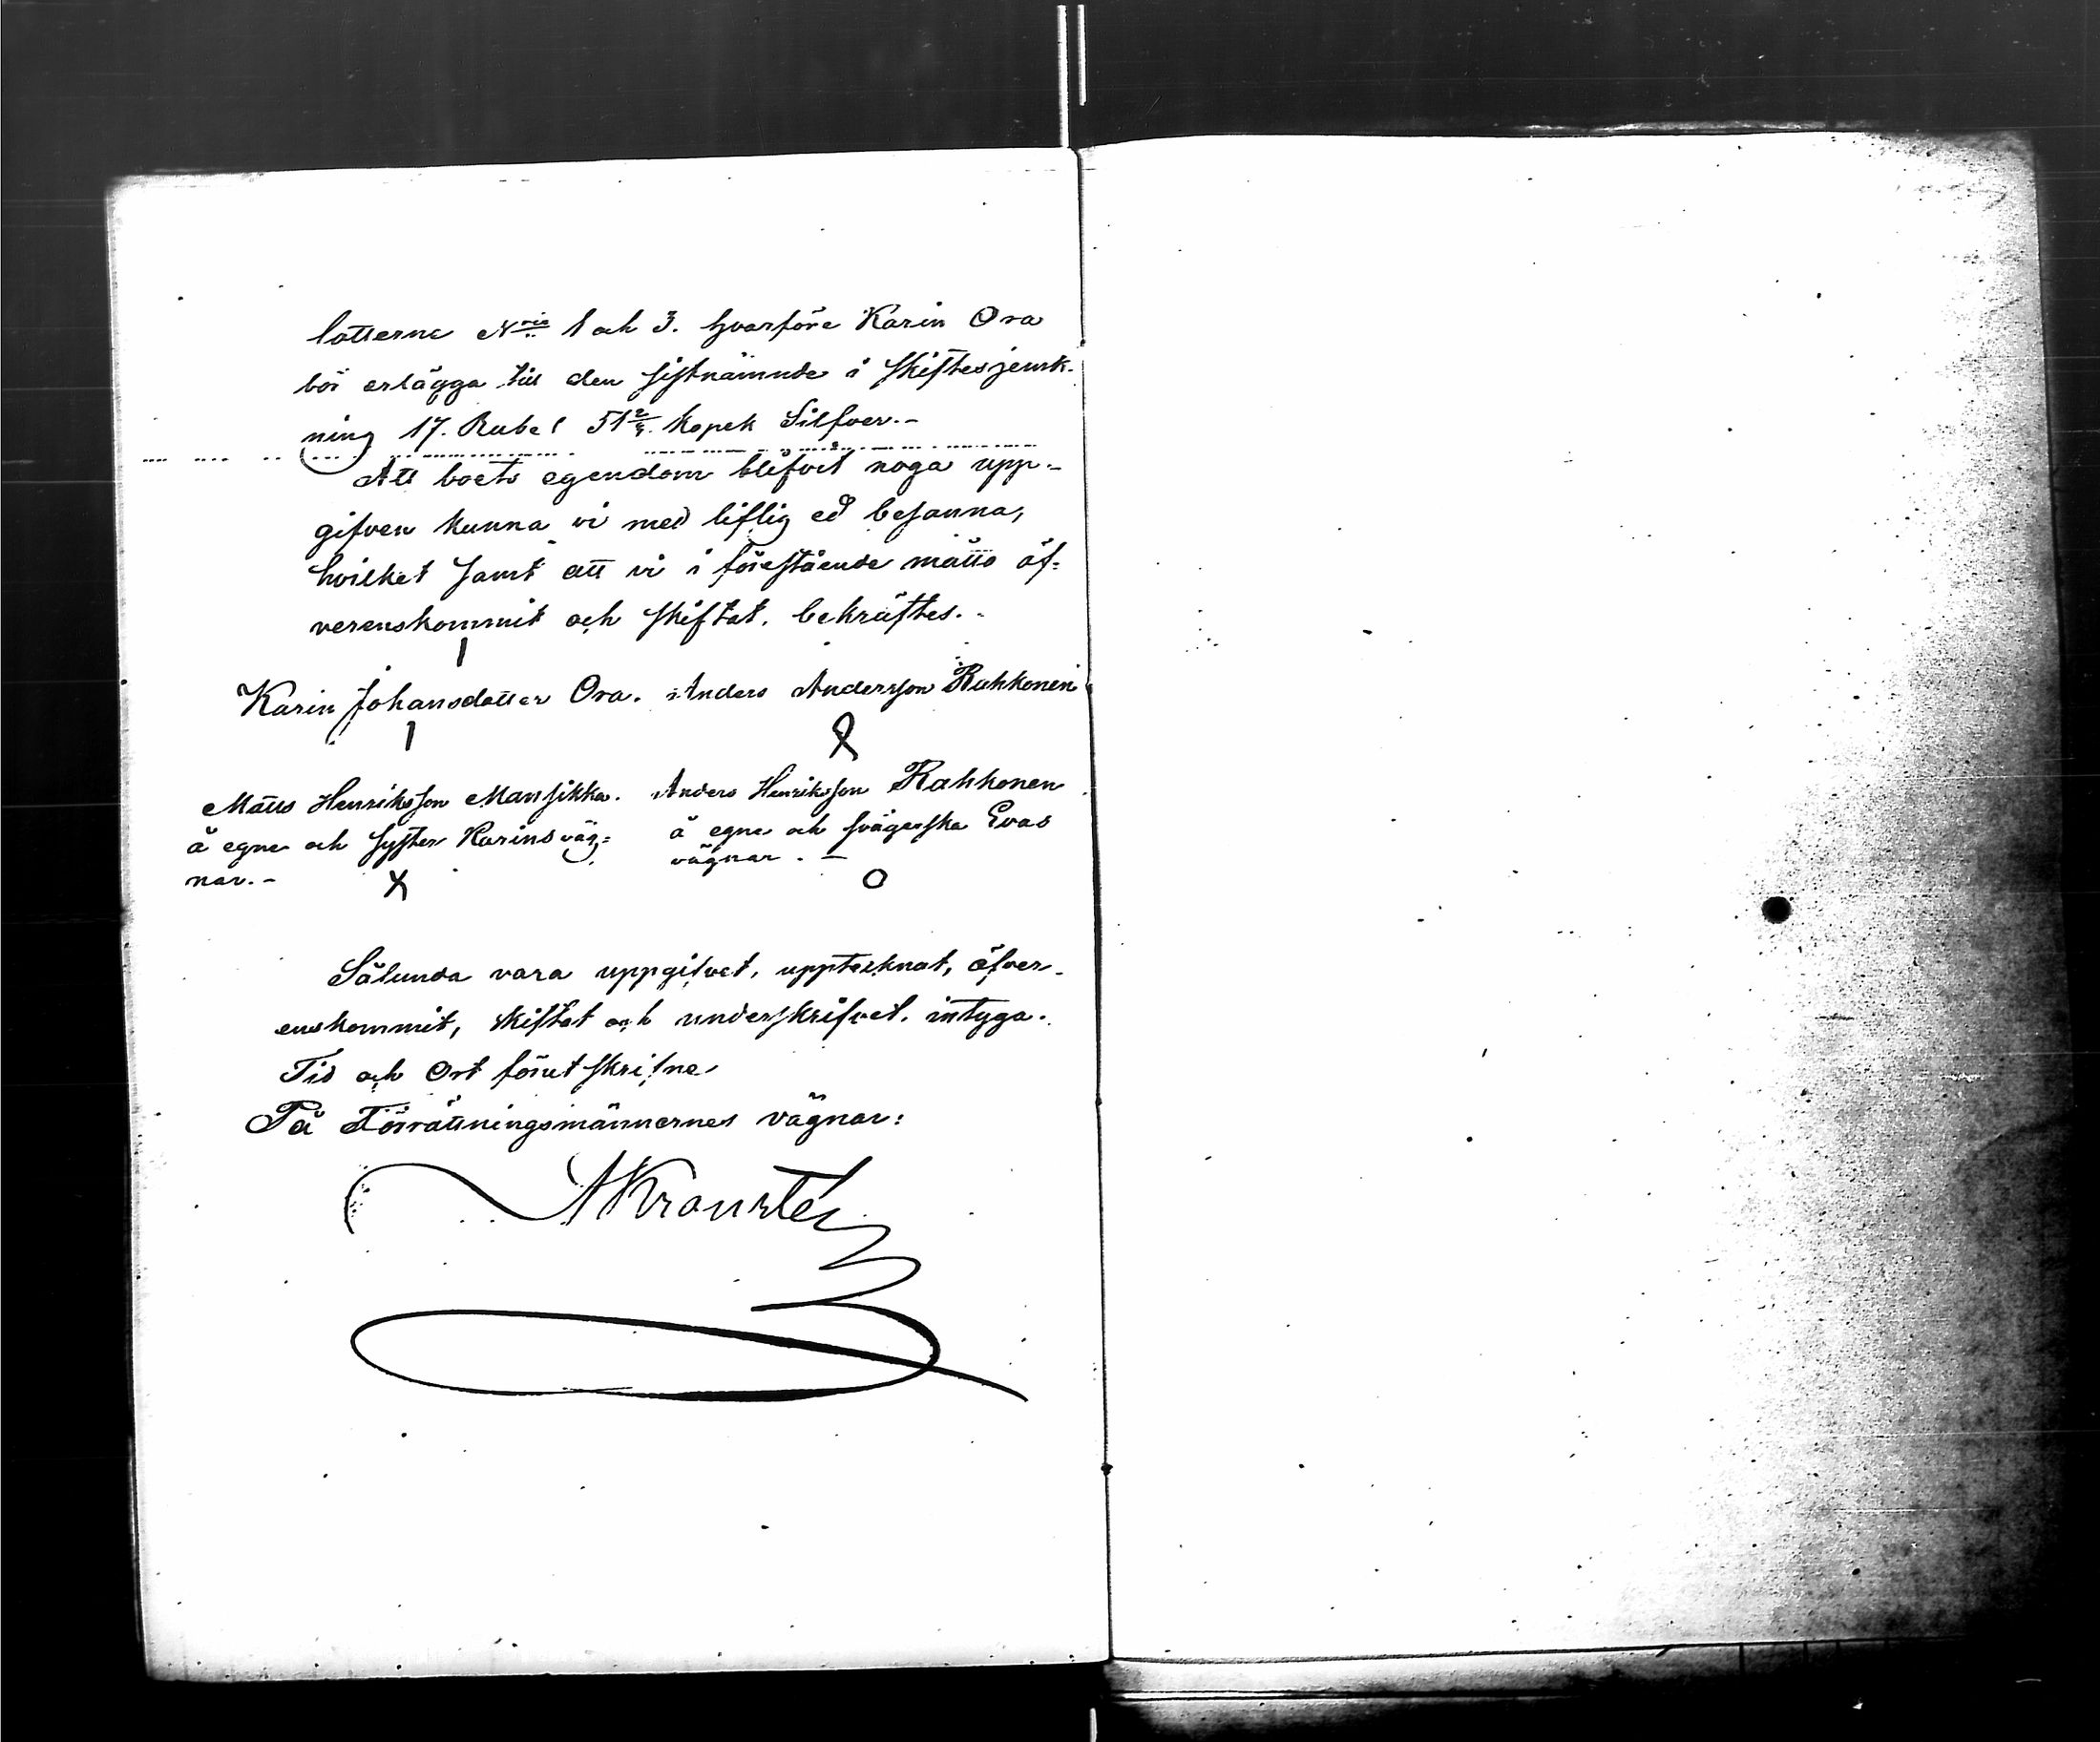 lotterne N:ris 1 och 3. hvarföre Karin Ora
bör erlägga till den sistnämnde i skiftesjemk-
ning 17. Rubel 51 2/4. kopek Silfver.-
Att boets egendom blifvit noga upp-
gifven kunna vi med liflig ed besanna,
hvilket samt att vi i förestående måtto öf=
verenskommit och skiftat, bekräftes.-
Karin Johansdotter Ora. Anders Andersson Rahkonen
Matts Henriksson Mansikka. Anders Henriksson Rahkonen
å egne och syster Karins väg= å egne och svägerska Evas
nar.- vägnar.-
X O
Sålunda vara uppgifvet, upptecknat, öfver-
enskommit, skiftat och underskrifvet, intyga.
Tid och Ort förutskrifne
På Förrättningsmännernes vägnar: